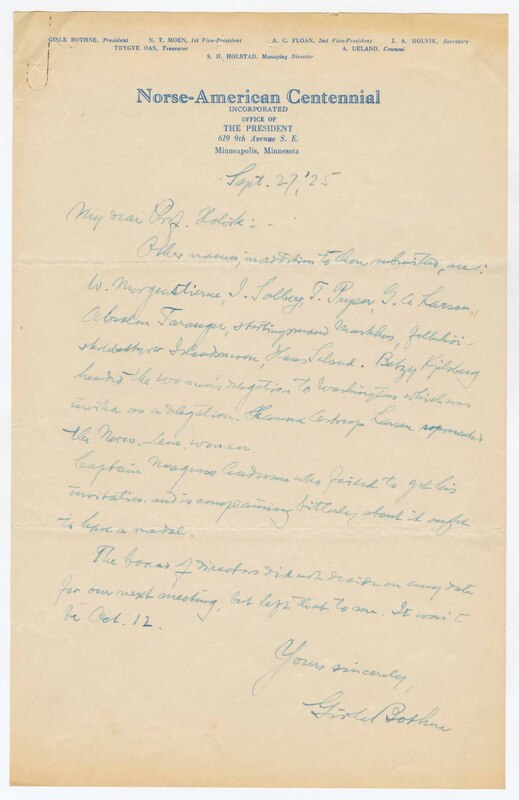 GISLE BOTHNE, President N. T. MOEN, 1st Vice-President A. C. FLOAN, 2nd Vice-President J. A. HOLVIK, Secretary
TRYGVE OAS, Treasurer A. UELAND, Counsel
S. H. HOLSTAD, Managing Director
Norse-American Centennial
INCORPORATED
OFFICE OF
THE PRESIDENT
619 9th Avenue S. E.
Minneapolis, Minnesota
Sept. 27, '25
My dear Prof. Holvik: -
Other names, in addition to those submitted, are:
W. Morgenstierne, I. Solberg, T. G. A. Larsen,
Absalon Taranger, stortingsmand
Hans Seland. Betzy Kjelsberg
headed the women's delegation to Washington which was
invited as a delegation. Hanna Astrup Larsen represented
the Norw.-Am. women.
Captain Magnus Andersen who failed to get his
invitation and is complaining bitterly about it ought
to have a medal.
The board of directors did not decide on any date
for our next meeting, but left that to me. It won't
be Oct. 12.
Yours sincerely,
Gisle Bothne